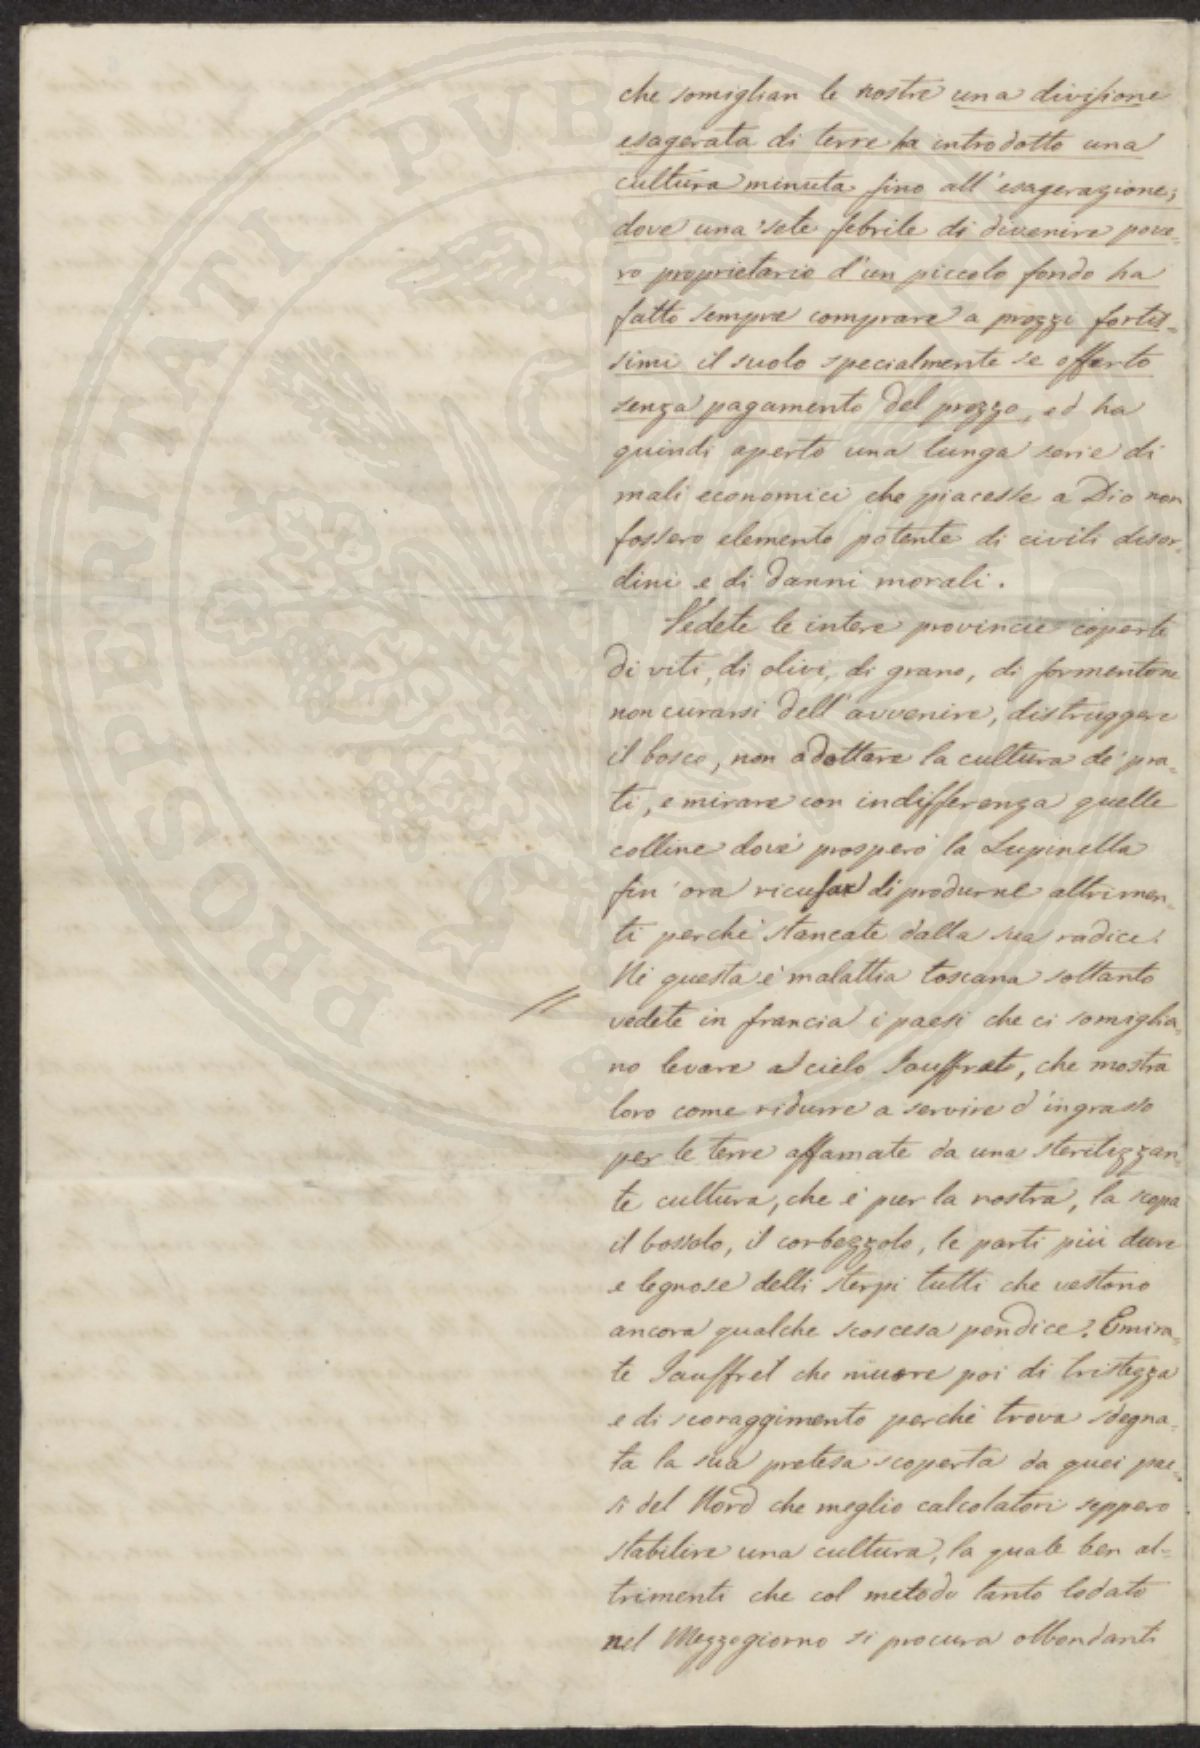 che somiglian le nostre una divisione
esagerata di terre ha introdotto una
cultura minuta fino all'esagerazione;
dove una sete febrile di divenire pove-
ro proprietario d'un piccolo fondo ha
fatto sempre comprare a prezzi fortis-
simi il suolo specialmente se offerto
senza pagamento del prezzo, ed ha
quindi aperto una lunga serie di
mali economici che piacesse a Dio non
fossero elemento potente di civili disor-
dini e di danni morali.
Vedete le intere provincie coperte
di viti, di olivi, di grano, di formentone
non curarsi dell'avvenire, distruggere
il bosco, non adottare la cultura de' pra-
ti, e mirare con indifferenza quelle
colline dove prosperò la Lupinella
fin'ora ricusar di produrne altrimen-
ti perchè stancate dalla sua radice.
Nè questa è malattia toscana soltanto
vedete in francia i paesi che ci somiglia-
no levare al cielo Jauffret, che mostra
loro come ridurre a servire d'ingrasso
per le terre affamate da una sterilizzan-
te cultura, che è pur la nostra, la scopa
il bossolo, il corbezzolo, le parti più dure
e legnose delli sterpi tutti che vestono
ancora qualche scoscesa pendice? E mira-
te Jauffret che muore poi di tristezza
e di scoraggimento perchè trova sdegna-
ta la sua pretesa scoperta da quei pae-
si del Nord che meglio calcolatori seppero
stabilire una cultura, la quale ben al-
trimenti che col metodo tanto lodato
nel Mezzogiorno si procura abbondanti
PROSPERITATI PVBLICAE